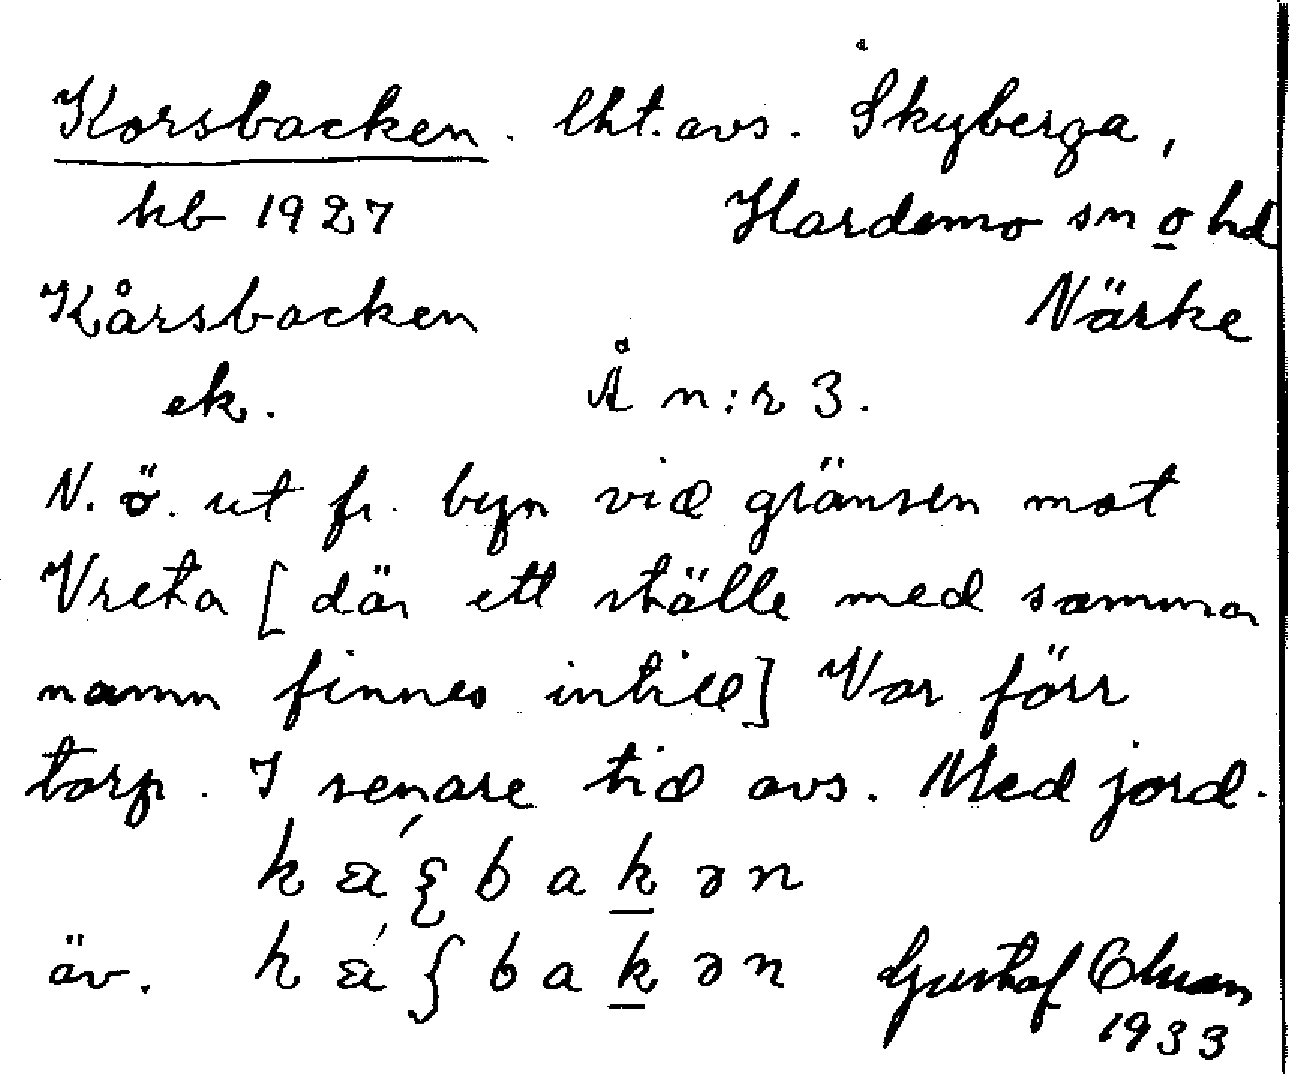 Korsbacken. lht. avs. Skyberga,
kb 1927 Hardemo sn o hd
Kårsbacken Närke
ek. Å n:r 3.
N. ö. ut fr. byn vid gränsen mot
Vreta [där ett ställe med samma
namn finnes intill] Var förr
torp. I senare tid avs. Med jord.
äv.
Gustaf
1933